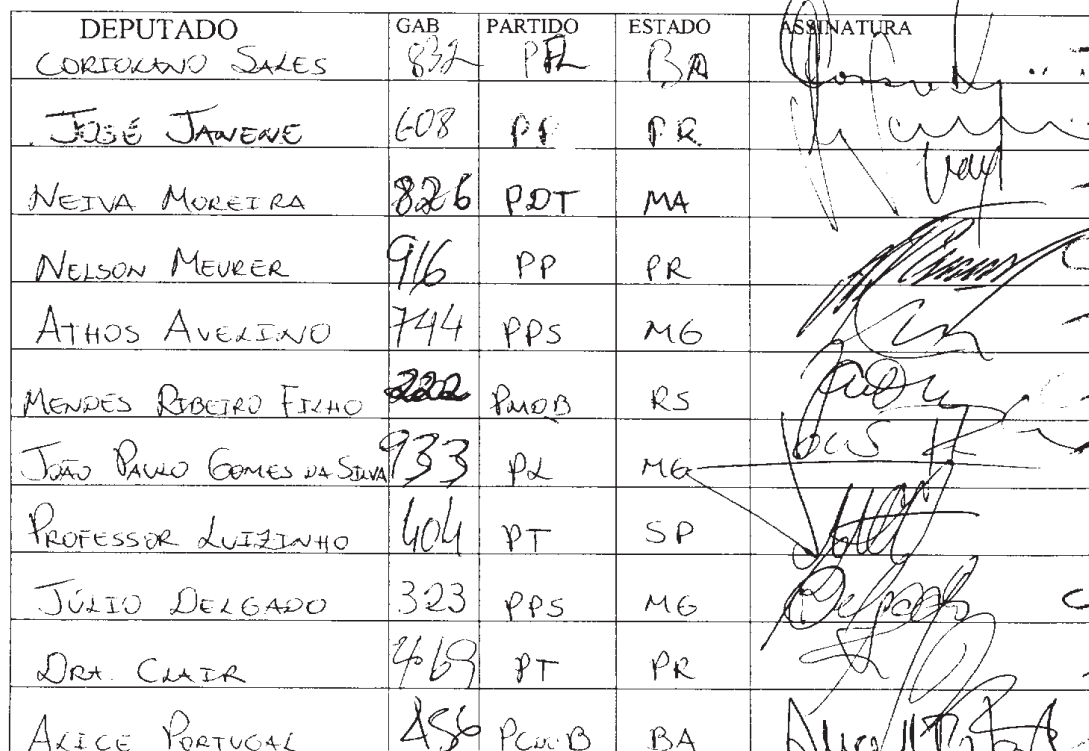 DEPUTADO GAB PARTIDO ESTADO ASSINATURA
CORIOLANO SALES 832 PFL BA
JOSÉ JANENE 608 PP PR
NEIVA MOREIRA 826 PDT MA
NELSON MEURER 916 PP PR
ATHOS AVELINO 744 PPS MG
MENDES RIBEIRO FILHO 2202 PMDB RS
JOÃO PAULO GOMES DA SILVA 933 PL MG
PROFESSOR LUIZINHO 404 PT SP
JÚLIO DELGADO 323 PPS MG Delgado
DRA. CLAIR 469 PT PR
ALICE PORTUGAL 456 PCdoB BA